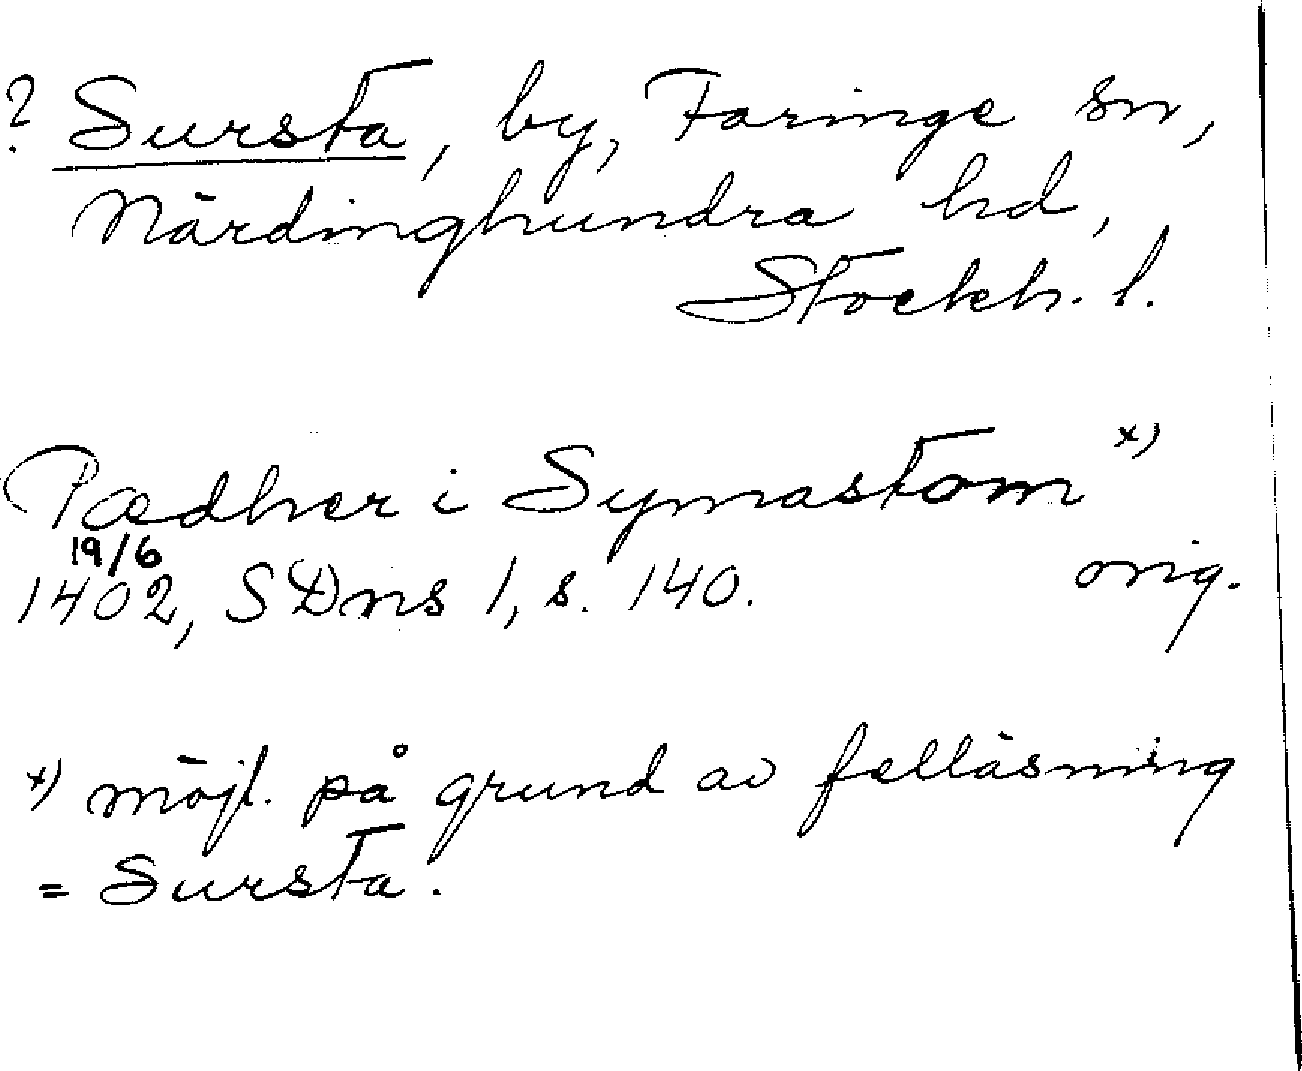 ? Sursta, by, Faringe sn,
Närdinghundra hd,
Stockh. l.
Pædher i Symastom x)
19/6
1402, SDns 1, s. 140. orig.
x) möjl. på grund av felläsning
= Sursta.